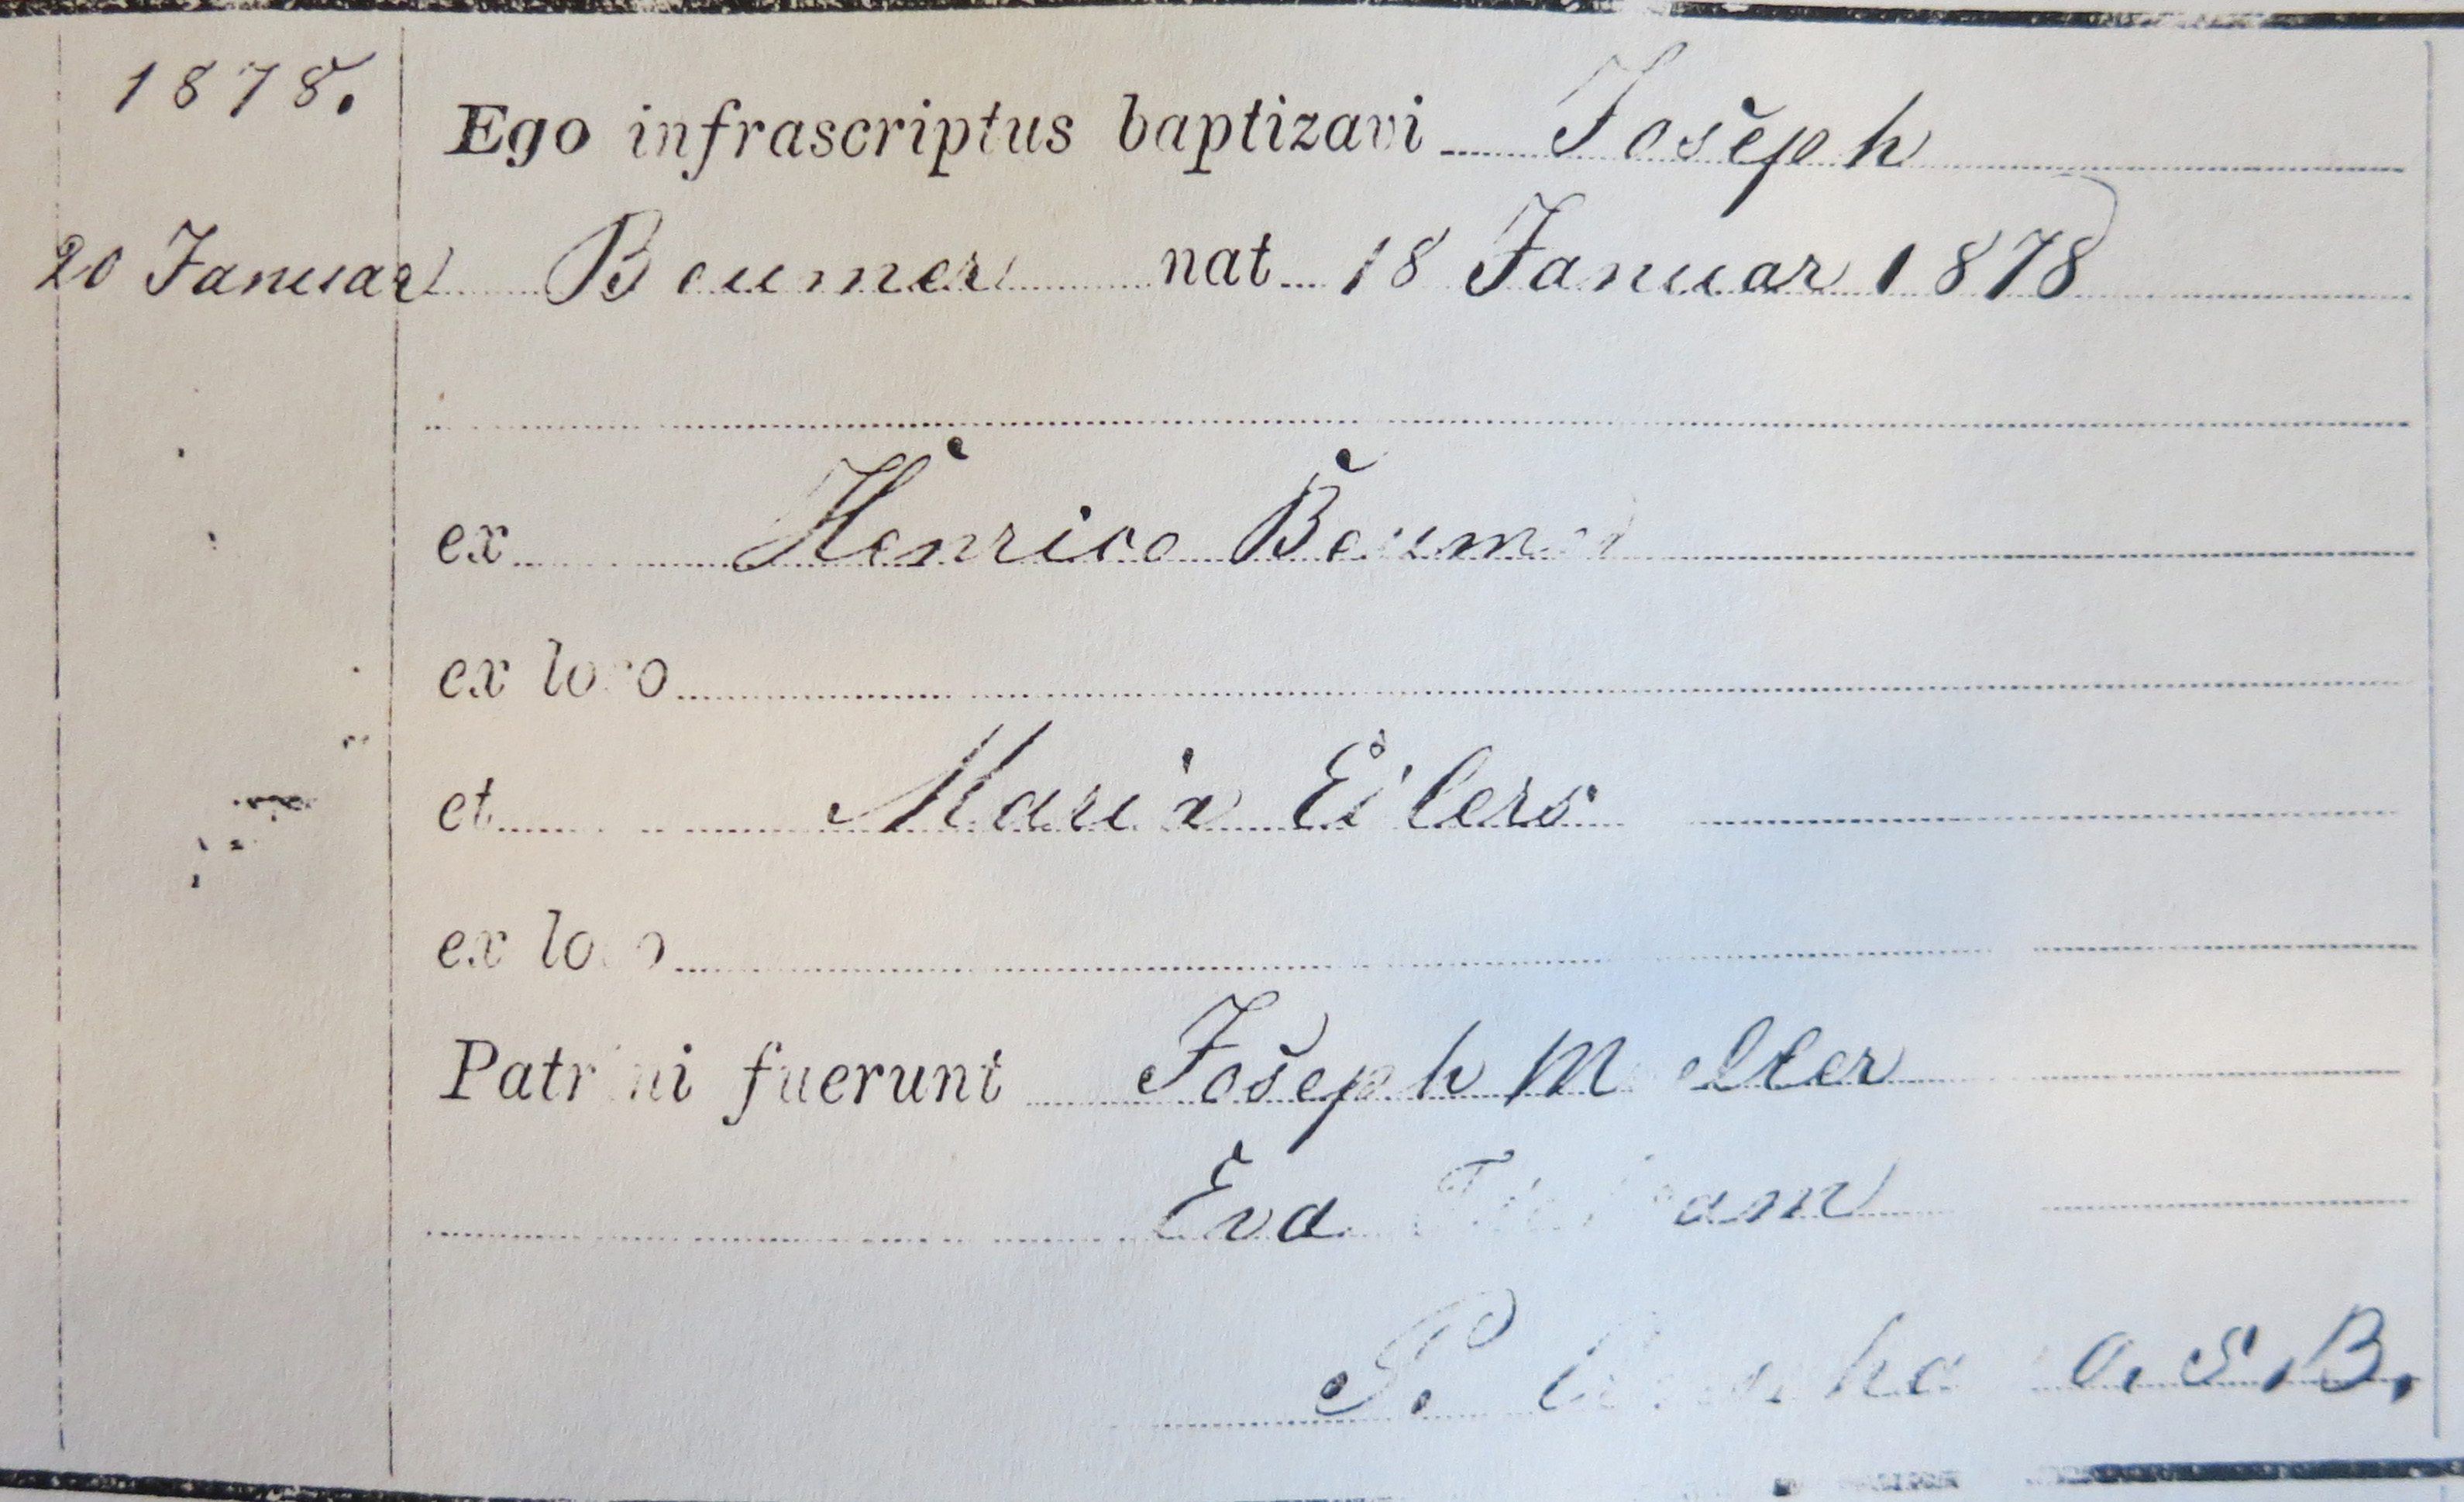 1878.
Ego infrascriptus baptizavi Joseph
20 Januar Beumer nat 18 Januar 1878
ex Henrico Beumer
ex loco
et Maria Eilers
ex loco
Patrini fuerunt Joseph
Eva
P. O.S.B.